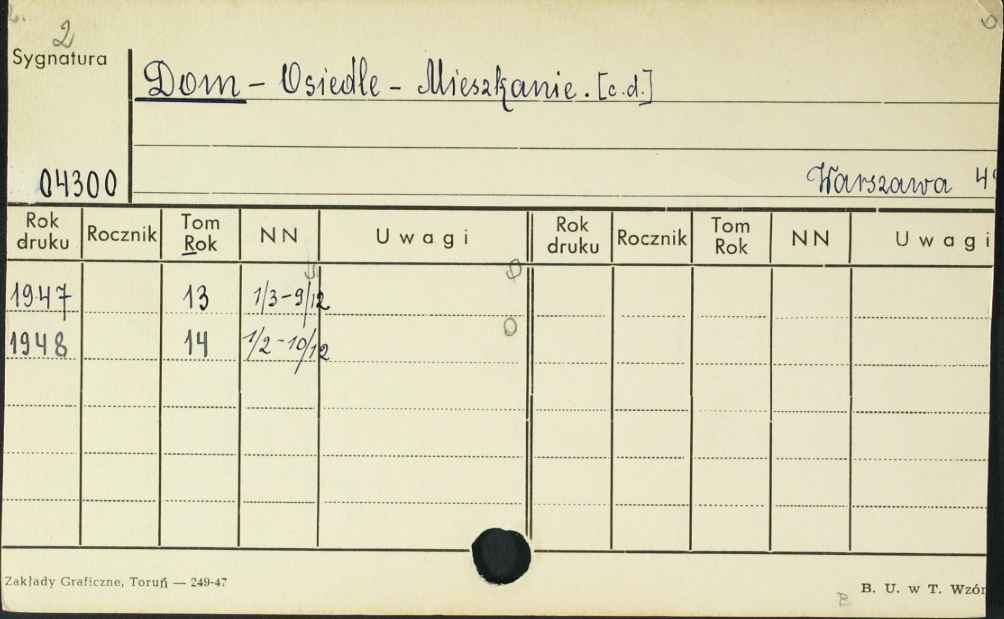 2
Sygnatura
Dom - Osiedle - Mieszkanie. [c.d.]
04300
Warszawa 49
Rok druku Rocznik Tom Rok NN Uwagi Rok druku Rocznik Tom Rok NN Uwagi
1947 13 1/3-9/12
1948 14 1/2-10/12
Zakłady Graficzne, Toruń — 249-47
B. U. w T. Wzór